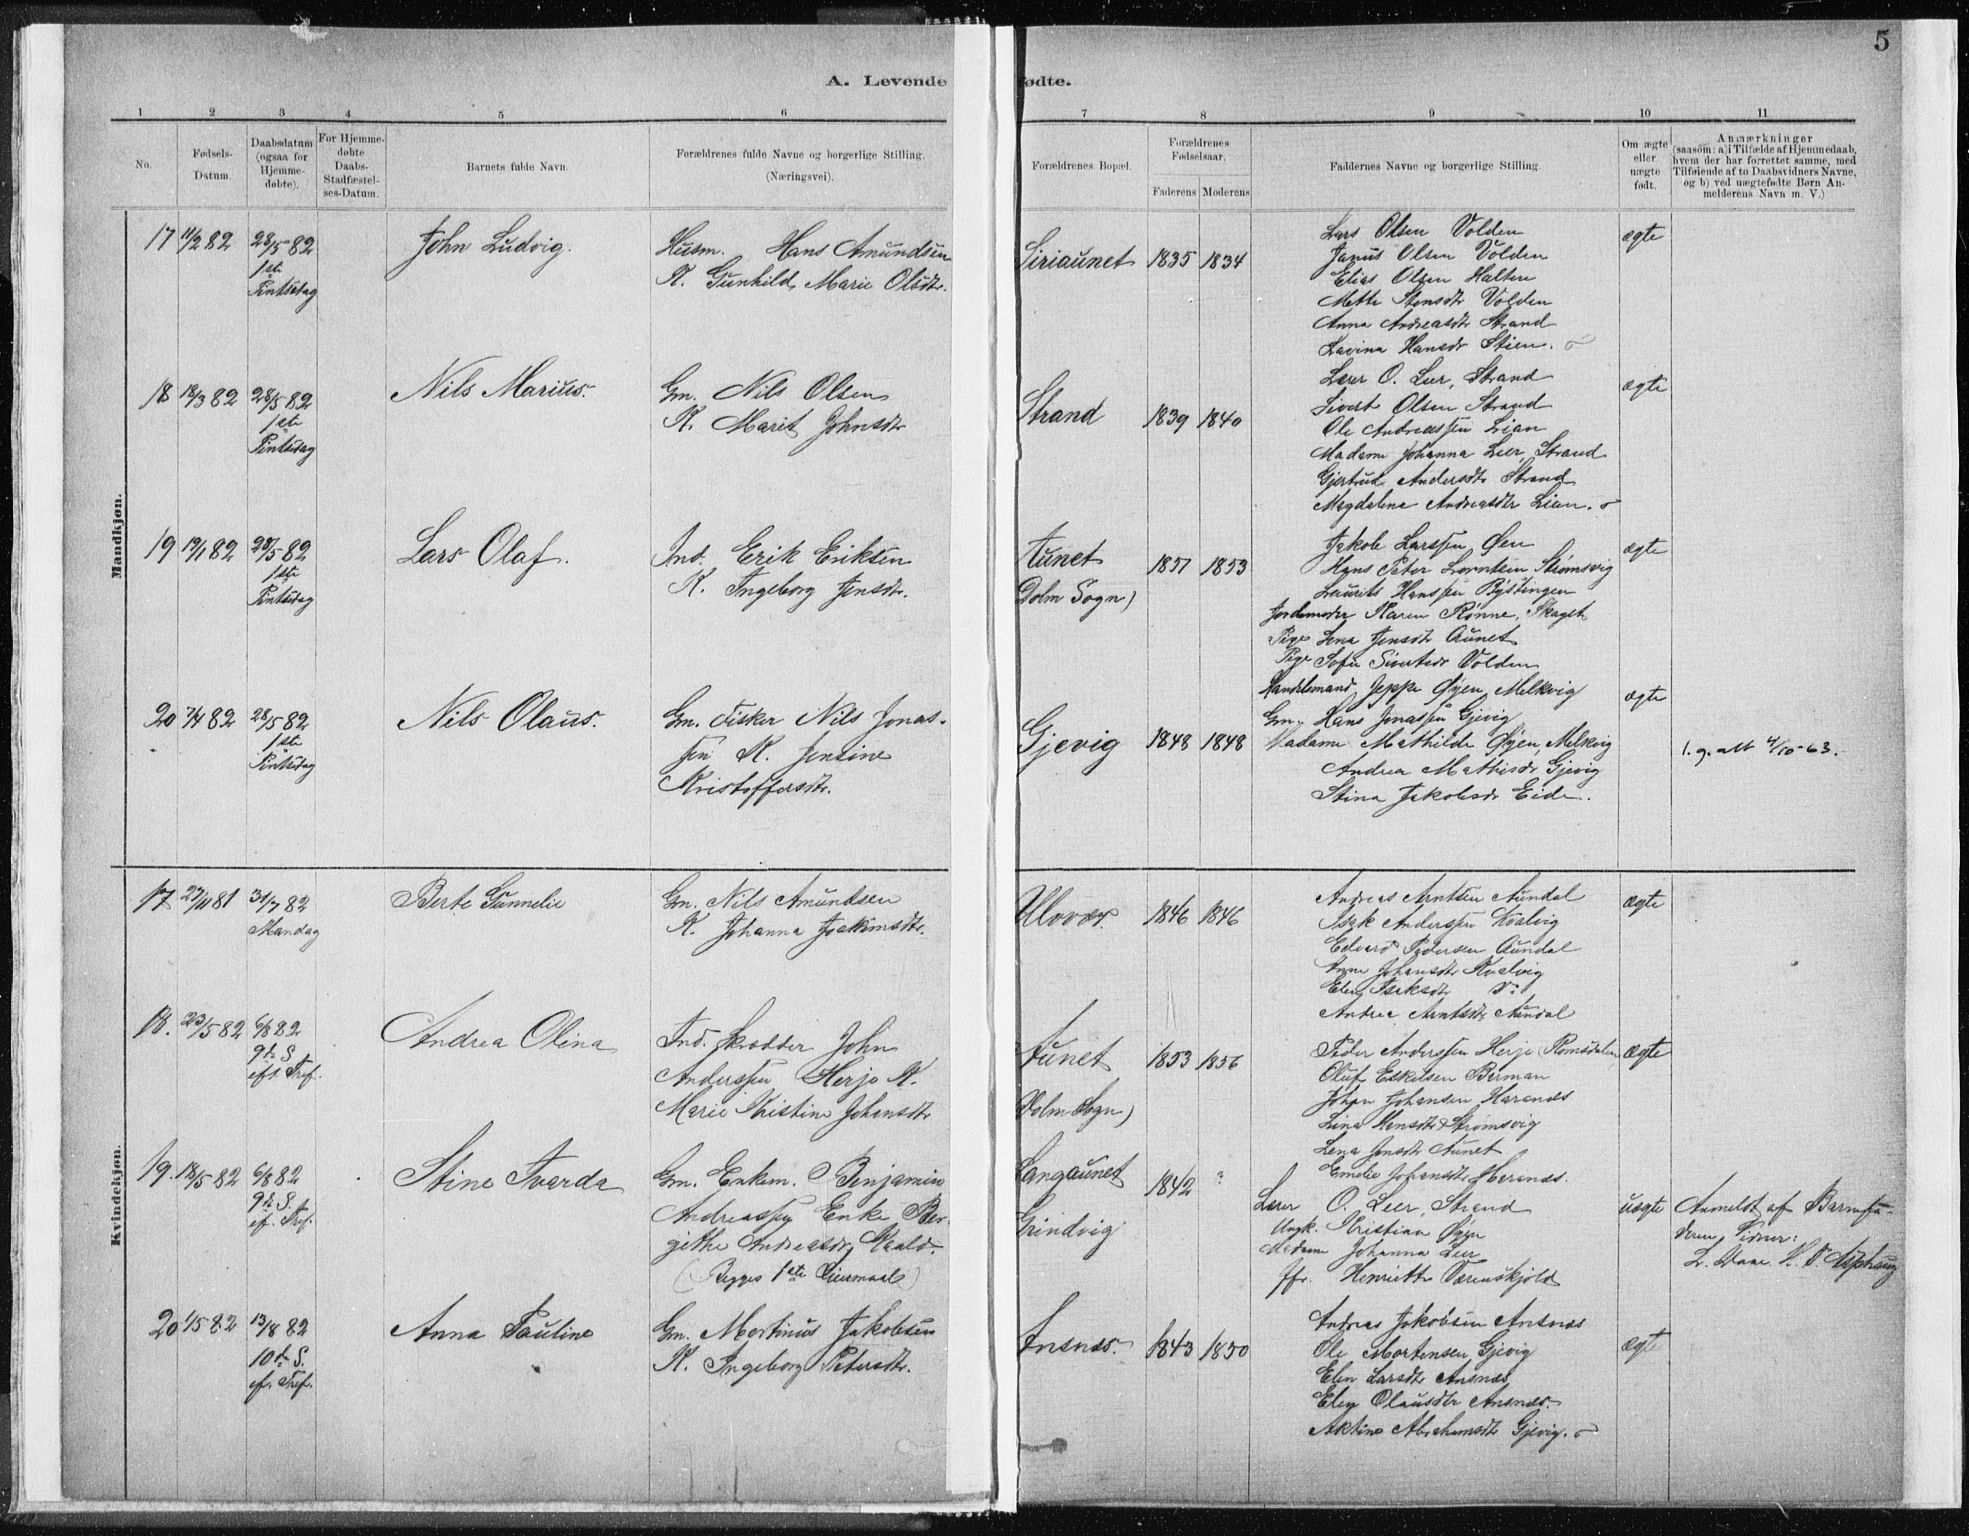 5
A. Levende fødte.
1 2 3 4 5 6 7 8 9 10 11
No.
Fødsels-
Datum.
Daabsdatum
(ogsaa for
Hjemme-
døbte).
For Hjemme-
døbte
Daabs-
Stadfæstel-
ses-Datum.
Barnets fulde Navn.
Forældrenes fulde Navne og borgerlige Stilling.
(Næringsvei).
Forældrenes Bopæl.
Forældrenes
Fødselsaar.
Faderens Moderens
Faddernes Navne og borgerlige Stilling.
Om ægte
eller
uægte
født.
Anmærkninger
(saasom: a) i Tilfælde af Hjemmedaab,
hvem der har forrettet samme, med
Tilføiende af to Daabsvidners Navne,
og b) ved uægtefødte Børn An-
melderens Navn m. V.)
Mandkjøn.
17 11/2 82
28/5 82
1ste
Pintsedag
John Ludvig.
Husm. Hans Amundsen
K. Gunhild Marie Olsdtr.
Siriaunet
1835 1834
Lars Olsen Volden
Janus Olsen Volden
Elias Olsen Halten
Mette Stensdtr Volden
Anna Andreasdtr Strand
Lavina Hansdr Stien.
ægte
18 18/3 82
28/5 82
1ste
Pintsedag
Nils Marius.
Gm. Nils Olsen
K. Marit Johnsdtr
Strand
1839 1840
Lærer O. Leer, Strand
Sivert Olsen Strand
Ole Andreassen Lian
Madam Johanna Leer, Strand
Gjertrud Andersdtr Strand
Magdalene Andreasdtr Lien.
ægte
19 19/1 82
28/5 82
1ste
Pintsedag
Lars Olaf.
Ind. Erik Eriksen
K. Ingeborg Jensdtr.
Aunet
Dolm Sogn)
1857 1853
Jakob Larssen Øen
Hans Peter Lorntsen Strømsvig
Laurits Hanssen Bystingen
Jordemoder Karen Rønne, Skaget
Pige Lena Jensdtr Aunet
Pige Sofie Sivertsdr Volden
ægte
20 7/4 82
28/5 82
1ste
Pintsedag
Nils Olaus.
Gm. Fisker Nils Jonas-
sen K. Jensine
Kristoffersdtr.
Gjevig
1848 1848
Handelsmand Jeppe Øyen, Melkvig
Gm. Hans Jonassen Gjevig
Madam Mathilde Øyen, Melkvig
Andrea Mathisdr Gjevig
Stina Jakobsdr Eide.
ægte
l. g. att 4/10-63.
Kvindekjøn.
17 27/11 81
31/7 82
Mandag
Berte Gunnelie
Gm. Nils Amundsen
K. Johanna Joakimsdtr.
Ulvøer.
1846 1846
Andreas Arntsen Aundal
Isak Anderssen Kvalvig
Edvard Pedersen Aundal
Anne Johansdtr Kvalvig
Elen Isaksdtr
Andrea Arntsdtr Aundal
ægte
18. 23/5 82
6/8 82
9de S.
eft. Tref.
Andrea Olina
Ind. Skrædder John
Anderssen Herje K.
Marie Kristine Johansdtr
Aunet
Dolm Sogn)
1853 1856
Peder Anderssen Herje Romsdalen
Oluf Eskilsen Berman
Johan Johansen Herenes
Lina Hensdtr Strømsvig
Lena Jensdtr Aunet
Emelie Johansdtr Herenes.
ægte
19. 18/5 82
6/8 82
9de S.
ef. Tref.
Stine Tvarda
Gm. Enkem. Benjamin
Andreassen Enke Ber-
githe Andreasdr Vaald.
(Begges 1ste Leiermaal)
Langaunet
Grindvig
1842 ?
Lærer O. Leer, Strand
Ungk. Kristian Øyen
Madam Johanna Leer
Henriette Værenskjold
uægte
Anmeldt af Barnefa-
deren. Vidner:
20 1/5 82
13/8 82
10de S.
ef. Tref.
Anna Pauline
Gm. Martinus Jakobsen
K. Ingeborg Petersdtr.
Ansnes.
1843 1850
Andreas Jakobsen Ansnes
Ole Mortensen Gjevig
Elen Larsdtr Ansnes
Elen Olausdtr Ansnes.
Aktine Abrahamsdtr Gjevig.
ægte